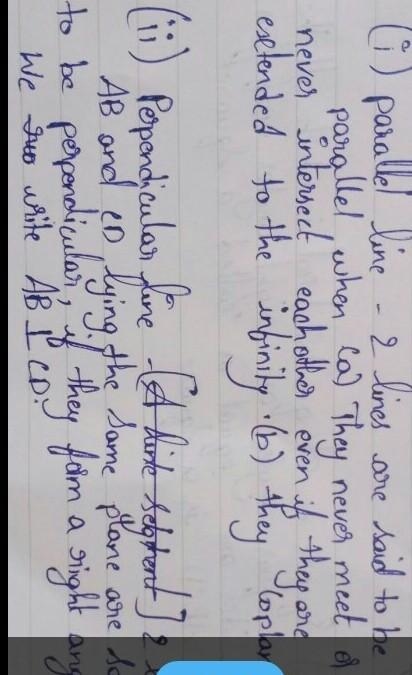 (i) parallel line - 2 lines are said to be
parallel when (a) They never meet or
never intersect each other even if they are
extended to the infinity. (b) they coplan
(ii) Perpendicular line - [A line segment] 2
AB and CD lying the same plane are
to be perpendicular, if they form a right ang
We write AB ⊥ CD.